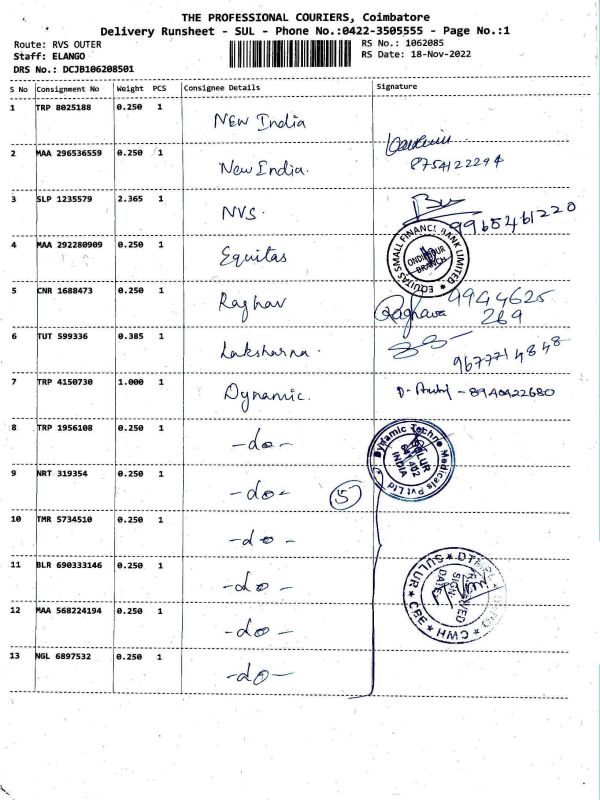 THE PROFESSIONAL COURIERS, Coimbatore
Delivery Runsheet - SUL - Phone No.:0422-3505555 - Page No.:1
Route: RVS OUTER
RS No.: 1062085
Staff: ELANGO
RS Date: 18-Nov-2022
DRS No.: DCJB106208501
S No Consignment No Weight PCS Consignee Details Signature
1 TRP 8025188 0.250 1 New India
2 MAA 296536559 0.250 1 New India. 8754122294
3 SLP 1235579 2.365 1 NVS. 9965461220
4 MAA 292280909 0.250 1 Equitas
EQUITAS SMALL FINANCE BANK LIMITED
ONDIPUDUR BRANCH
5 CNR 1688473 0.250 1 Raghav Raghava 9944625
269
6 TUT 599336 0.385 1 Lakshanna. 9677714848
7 TRP 4150730 1.000 1 Dynamic. 8940422680
8 TRP 1956108 0.250 1 -do-
Dynamic Techno Medicals Pvt Ltd
SULUR
641 402
INDIA
9 NRT 319354 0.250 1 -do- 5
10 TMR 5734510 0.250 1 -do-
11 BLR 690333146 0.250 1 -do-
SULUR ★ CBE ★ HWC ★
SIGN
DATE
12 MAA 568224194 0.250 1 -do-
13 NGL 6897532 0.250 1 -do-